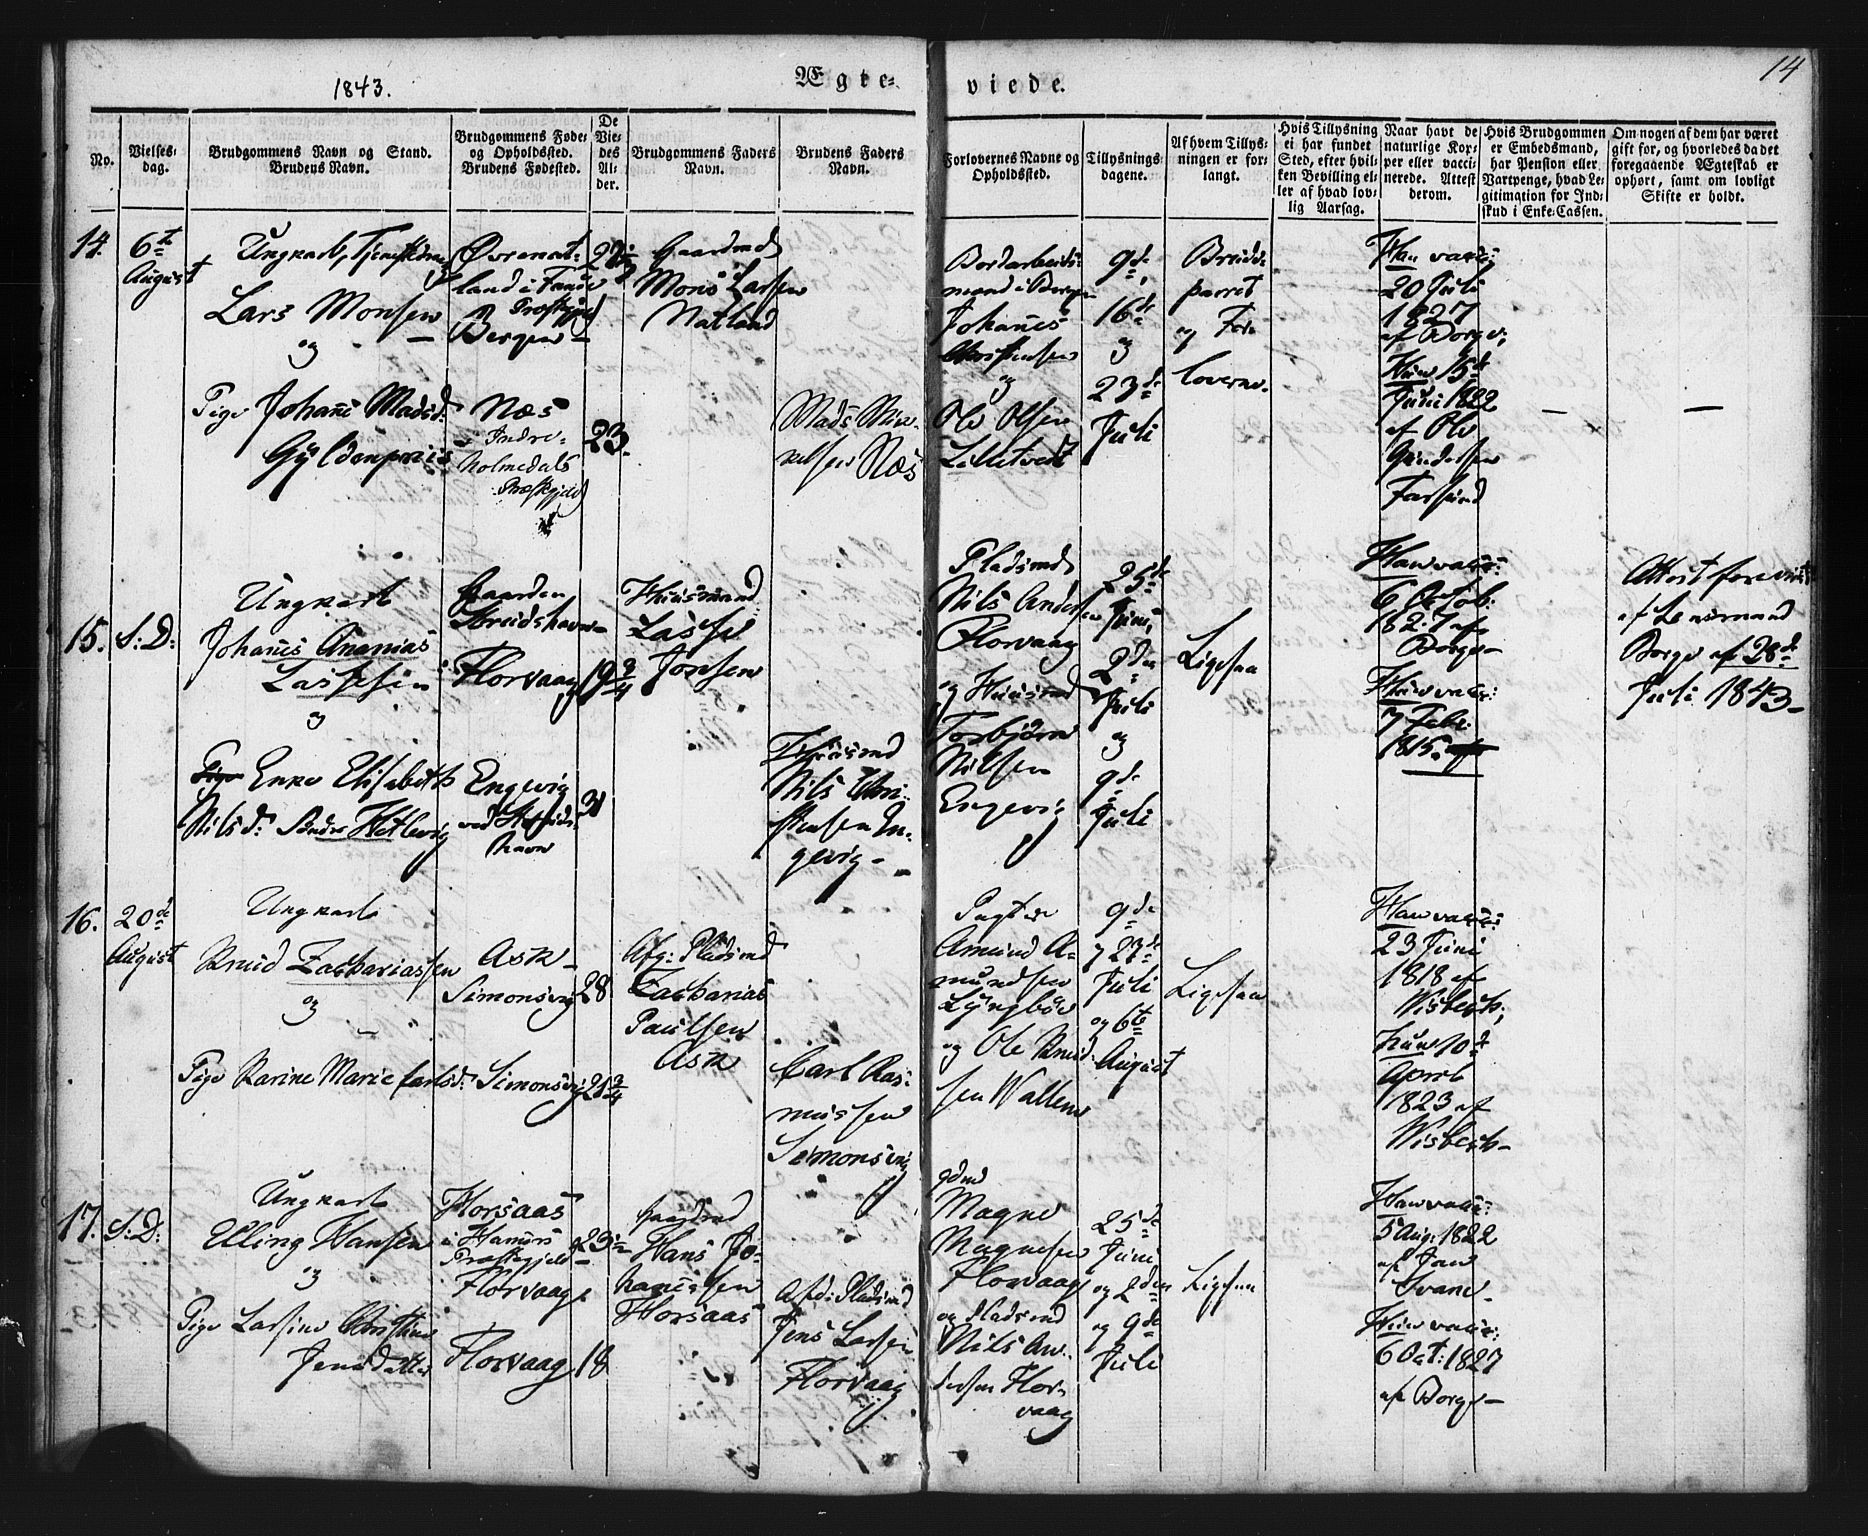 1843.
Ægte=
viede.
14
No.
Vielses=
dag.
Brudgommens Navn og Stand.
Brudens Navn.
Brudgommens Føde=
og Opholdssted.
Brudens Fødested.
De
Vie=
des
Al=
der.
Brudgommens Faders
Navn.
Brudens Faders
Navn.
Forlovernes Navne og
Opholdssted.
Tillysnings=
dagene.
Af hvem Tillys=
ningen er for=
langt.
Hvis Tillysning
ei har fundet
Sted, efter hvil=
ken Bevilling el=
ler af hvad lov=
lig Aarsag.
Naar havt de
naturlige Kop=
per eller vacci=
nerede. Attest
derom.
Hvis Brudgommen
er Embedsmand,
har Pension eller
Vartpenge, hvad Le=
gitimation for Ind=
skud i Enke=Cassen.
Om nogen af dem har været
gift før, og hvorledes da det
foregaaende Ægteskab er
ophørt, samt om lovligt
Skifte er holdt.
14.
6te
August
Ungkarl,
Lars Monsen
og
Pige Johane Madsd:
Gyldenpriis
Øvrenat-
land i Fane
Præstgjeld
Bergen
Næs
Indre-
Holmedals
Præstgjeld
23.
Gaardmd
Mons Larsen
Natland
Mads Mik-
kelsen Næs
Bordarbeids-
mand i Bergen
Johanes
Christensen
og
Ole Olsen
Lilletvedt
9de,
16de
og
23de
Juli
Brude-
parret
og For-
loverne.
Han vacc:
20 Juli
1827
af Borge,
Hun 15de
Juni 1822
af Ole
Gundersen
Farsund
—
—
15.
S: D:
Ungkarl
Johanes Ananias
Lassesen
og
Pige Enke Elisabeth
Nilsd: Søndre Hetlevig
Gaarden
Strudshavn
Florvaag
Engevig
ved Struds-
havn
19 3/4
31
Huusmand
Lasse
Jonsen
Huusmd
Nils Chri-
stensen En-
gevig-
Pladsmd
Nils Andersen
Florvaag
og Huusmd
Torbjørn
Nilsen
Engevig
25de
Juni,
2den
Juli
og
9de
Juli
Ligesaa
Han vacc:
6 Octob:
1827 af
Borge-
Hun vacc:
7 Febr:
1815. af
Attest foreviist
af Lensmand
Borge af 28de
Juli 1843-
16.
20de
August
Ungkarl
Knud Zachariassen
og
Pige Karine Marie Carlsd:
Ask-
Simonsvig
Simonsvig
28
21 3/4
Afg: Pladsmd
Zacharias
Paulsen
Ask
Carl Ras-
mussen
Simonsvig
Pagter
Amund A-
mundsen
Lyngbøe
og Ole Knud-
sen Wallen
9de
og 23de
Juli
og 6te
August
Ligesaa
Han vacc:
23 Juni
1818 af
Wisbech;
hun 10de
April
1823 af
Wisbech-
17.
S: D:
Ungkarl
Elling Hansen
og
Pige Larsine Christine
Jensdatter
Horsaas
i Hammers
Præstegjeld-
Florvaag
Florvaag
18
Gaardmd
Hans Jo-
hanessen
Horsaas
Afd: Pladsmd
Jens Larsen
Florvaag
gdmd
Magne
Magnesen
Florvaag
og Pladsmd
Nils An-
dersen Flor-
vaag
25de
Juni
og 2den
og 9de
Juli
Ligesaa
Han vacc:
5 Aug: 1822
af Jan
Svane-
Hun vacc:
6 Oct: 1827
af Borge-